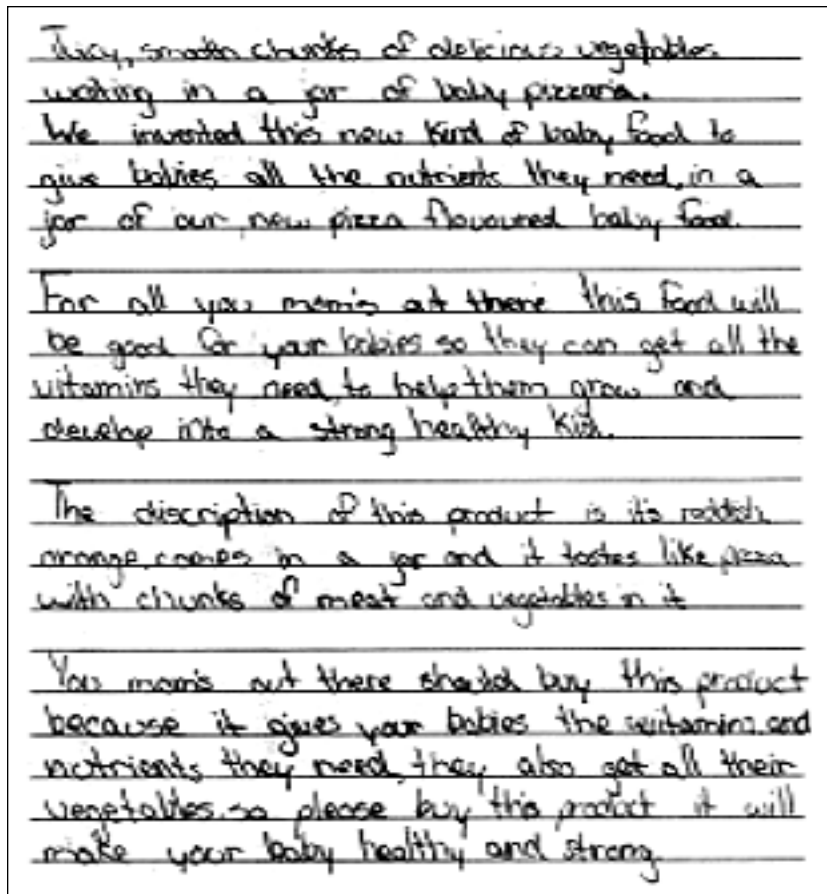 Juicy, smooth chunks of delicious vegetables
waiting in a jar of baby pizzaria.
We invented this new kind of baby food to
give babies all the nutrients they need, in a
jar of our new pizza flavoured baby food.
For all you mom's out there this food will
be good for your babies so they can get all the
vitamins they need, to help them grow and
develop into a strong healthy kid.
The discription of this product is it's reddish
orange, comes in a jar and it tastes like pizza
with chunks of meat and vegetables in it
You mom's out there should buy this product
because it gives your babies the vitamins, and
nutrients they need, they also get all their
vegetables, so please buy this product it will
make your baby healthy and strong